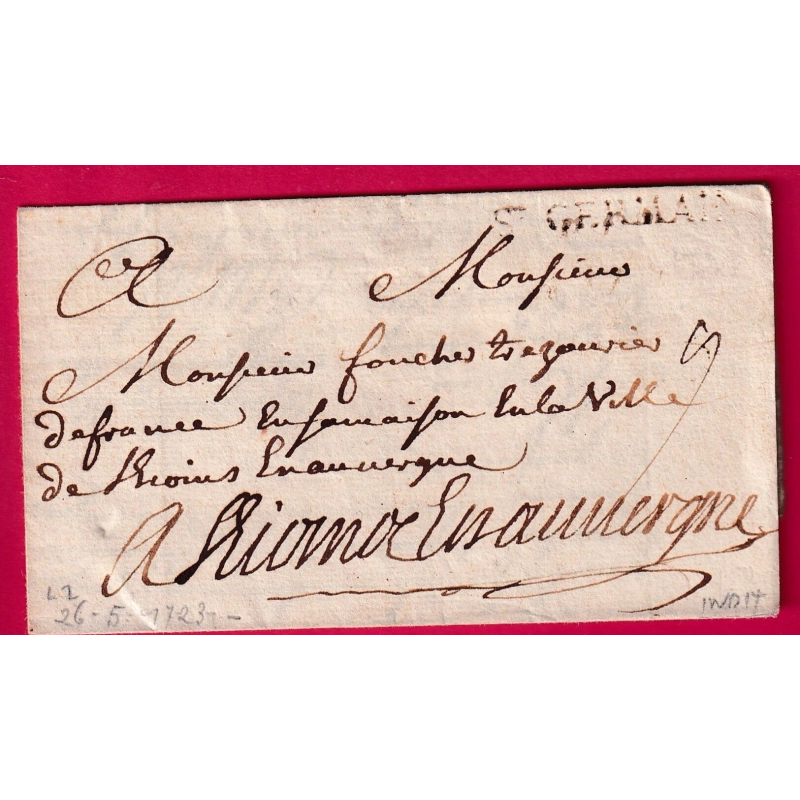 St GERMAIN
A Monsieur
Monsieur foucher trezaurier
de france En sa maison En la Ville
de Rioms En auvergne
9
A Riom En auvergne
L1
26-5-1723-
IND 17